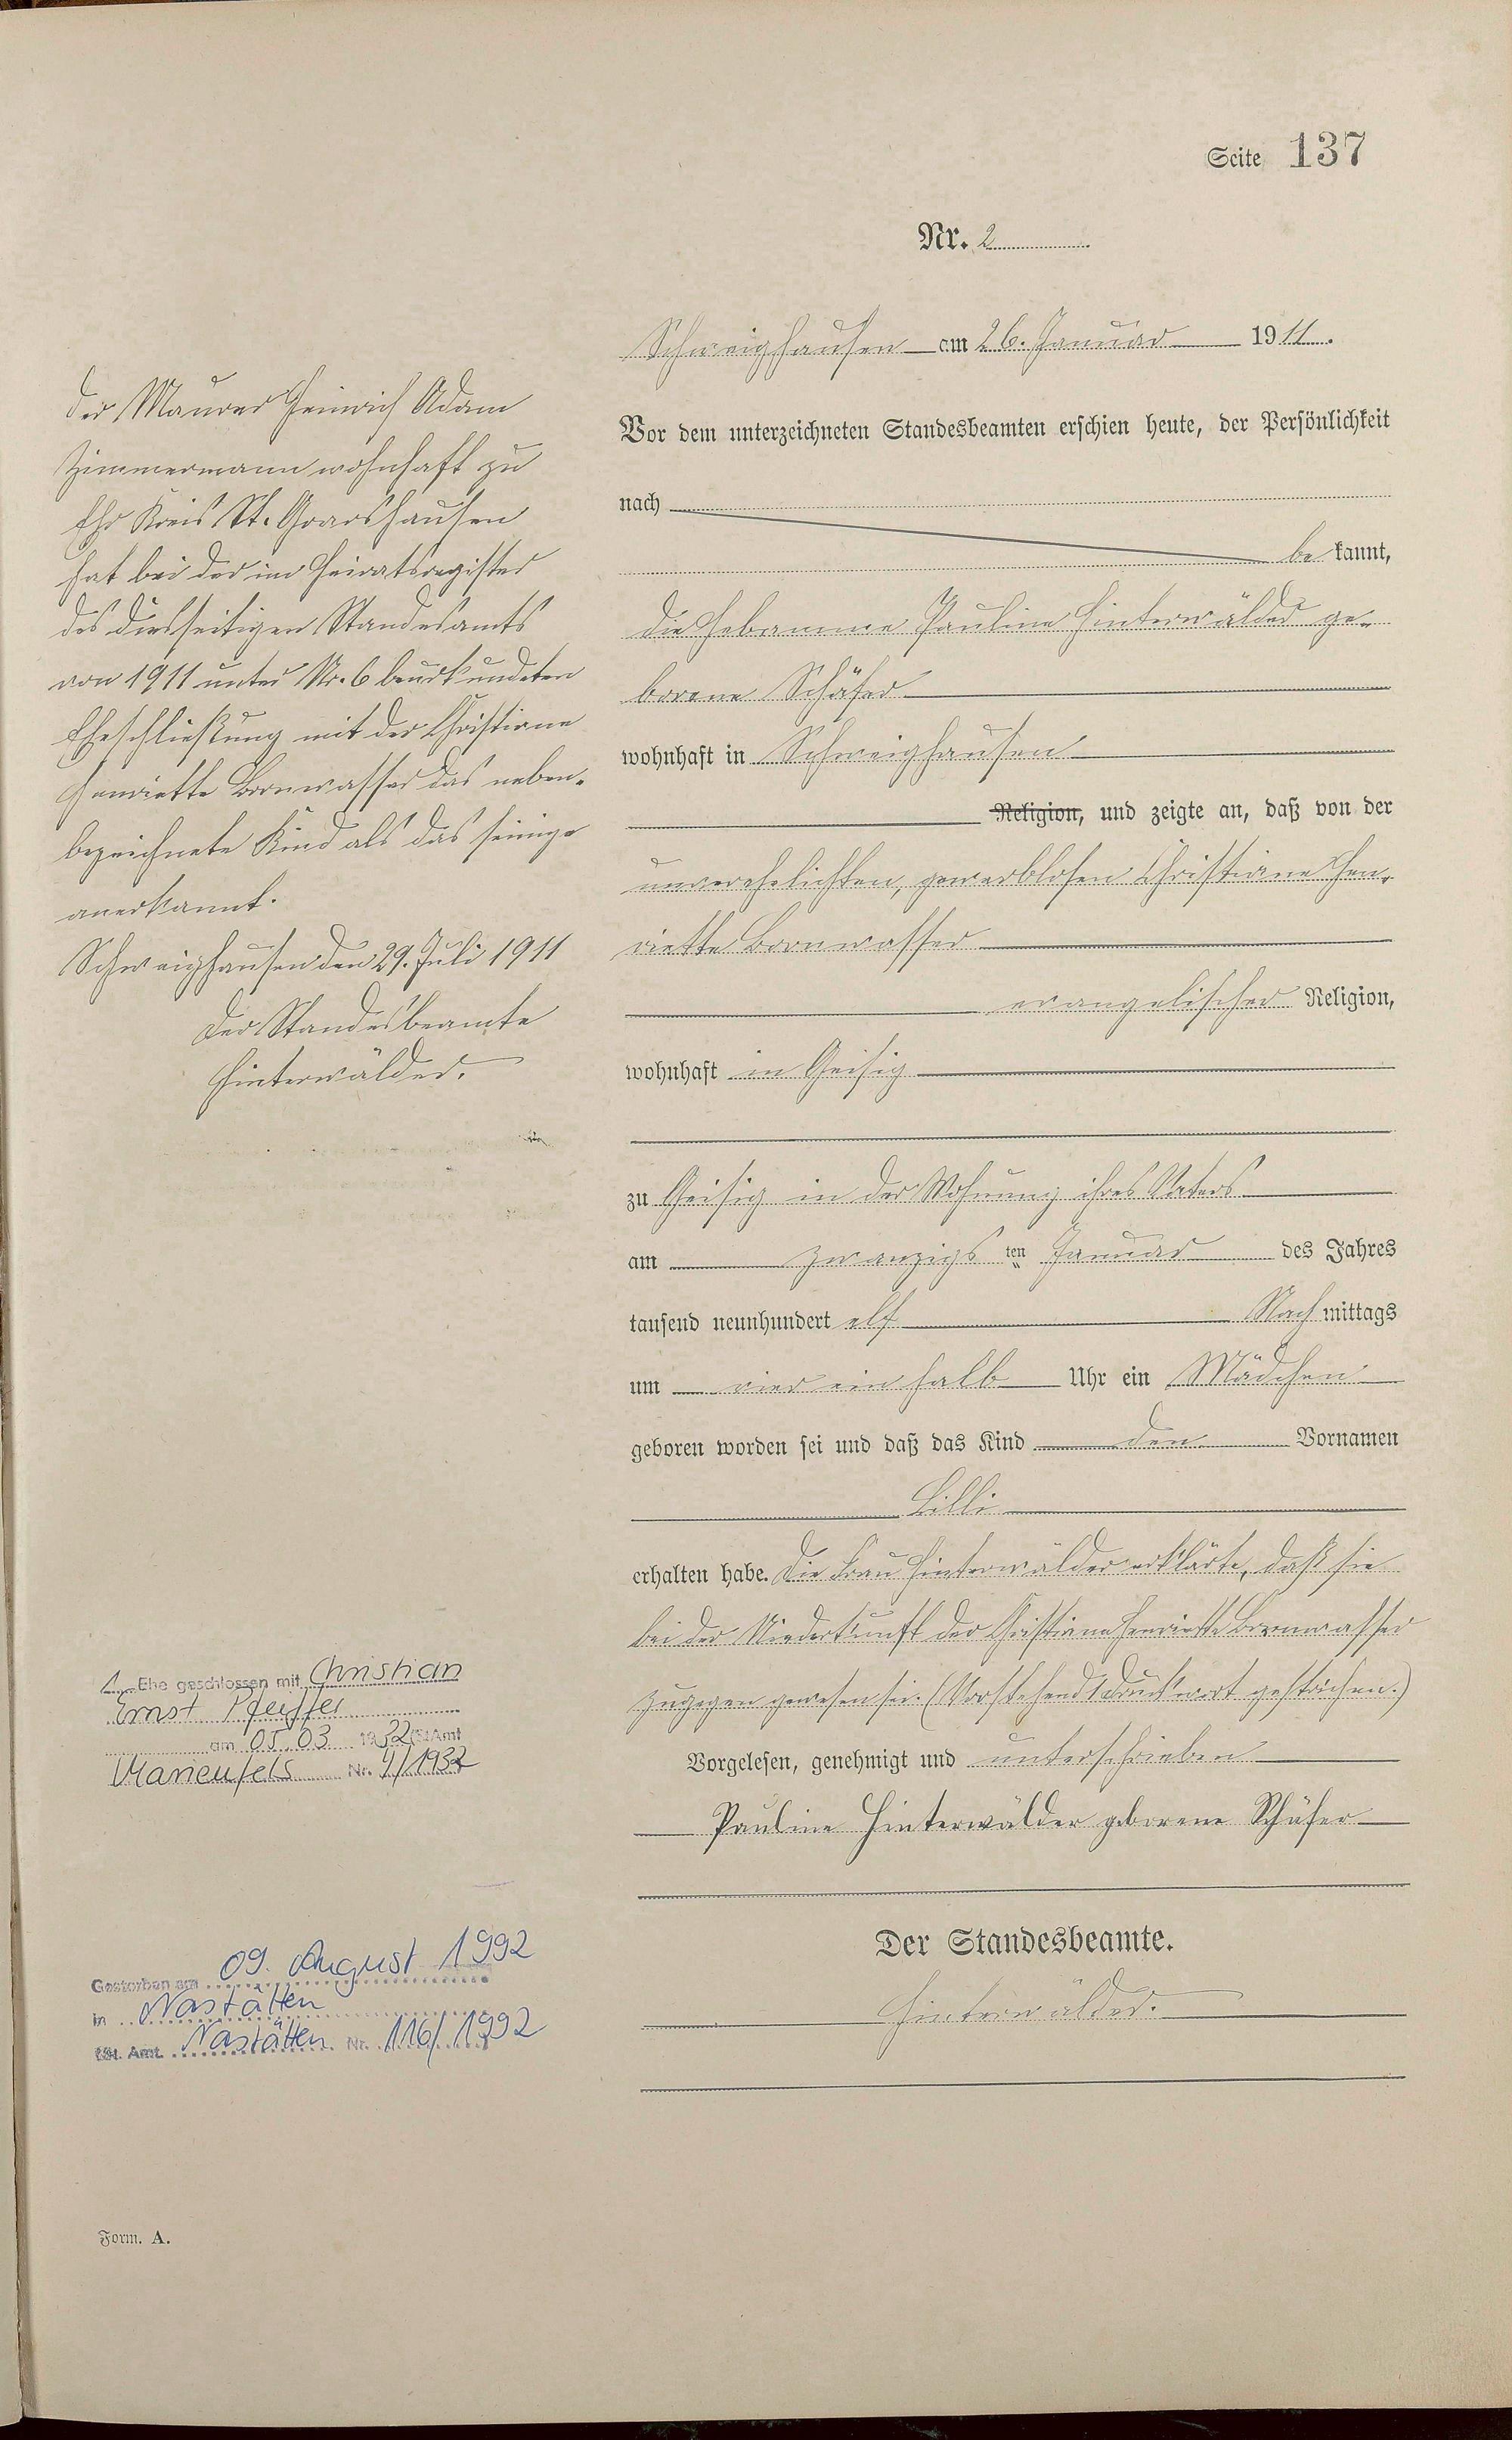 Seite 137
Nr. 2
Schweighausen am 26. Januar 1911.
Vor dem unterzeichneten Standesbeamten erschien heute, der Persönlichkeit
nach
be kannt,
die Hebamme Pauline Hinterwälder ge-
borene Schäfer
wohnhaft in Schweighausen
Religion, und zeigte an, daß von der
unverehelichten, gewerblosen Christiane Hen-
riette Bornwasser
evangelischer Religion,
wohnhaft in Geisig
zu Geisig in der Wohnung ihres Vaters
am zwanzigs ten Januar des Jahres
tausend neunhundert elf Nach mittags
um vier ein halb Uhr ein Mädchen
geboren worden sei und daß das Kind den Vornamen
Lilli
erhalten habe. Die Frau Hinterwälder erklärte, daß sie
bei der Niederkunft der Christiane Henriette Bornwasser
zugegen gewesen sei. (Vorstehend 1 Druckwort gestrichen.)
Vorgelesen, genehmigt und unterschrieben
Pauline Hinterwälder geborene Schäfer
Der Standesbeamte.
Hinterwälder.
Der Maurer Heinrich Adam
Zimmermann wohnhaft zu
Ehr Kreis St. Goarshausen
hat bei der im Heiratsregister
des diesseitigen Standesamts
von 1911 unter Nr. 6 beurkundeten
Eheschließung mit der Christiane
Henriette Bornwasser das neben-
bezeichnete Kind als das seinige
anerkannt.
Schweighausen den 29. Juli 1911
Der Standesbeamte
Hinterwälder.
1. Ehe geschlossen mit Christian
Ernst Pfeiffer
am 05.03. 1932 (St.Amt
Marienfels Nr. 4/1932
Gestorben am 09. August 1992
in Nastätten
(St. Amt. Nastätten Nr. 116/1992
Form. A.